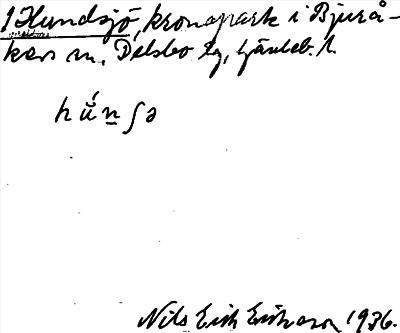 1 Hundsjö, kronopark i Bjurå-
kers sn, Delsbo tg, Gävleb. l.
hú̆n̲ʃə
Nils Erik Eriksson 1936.